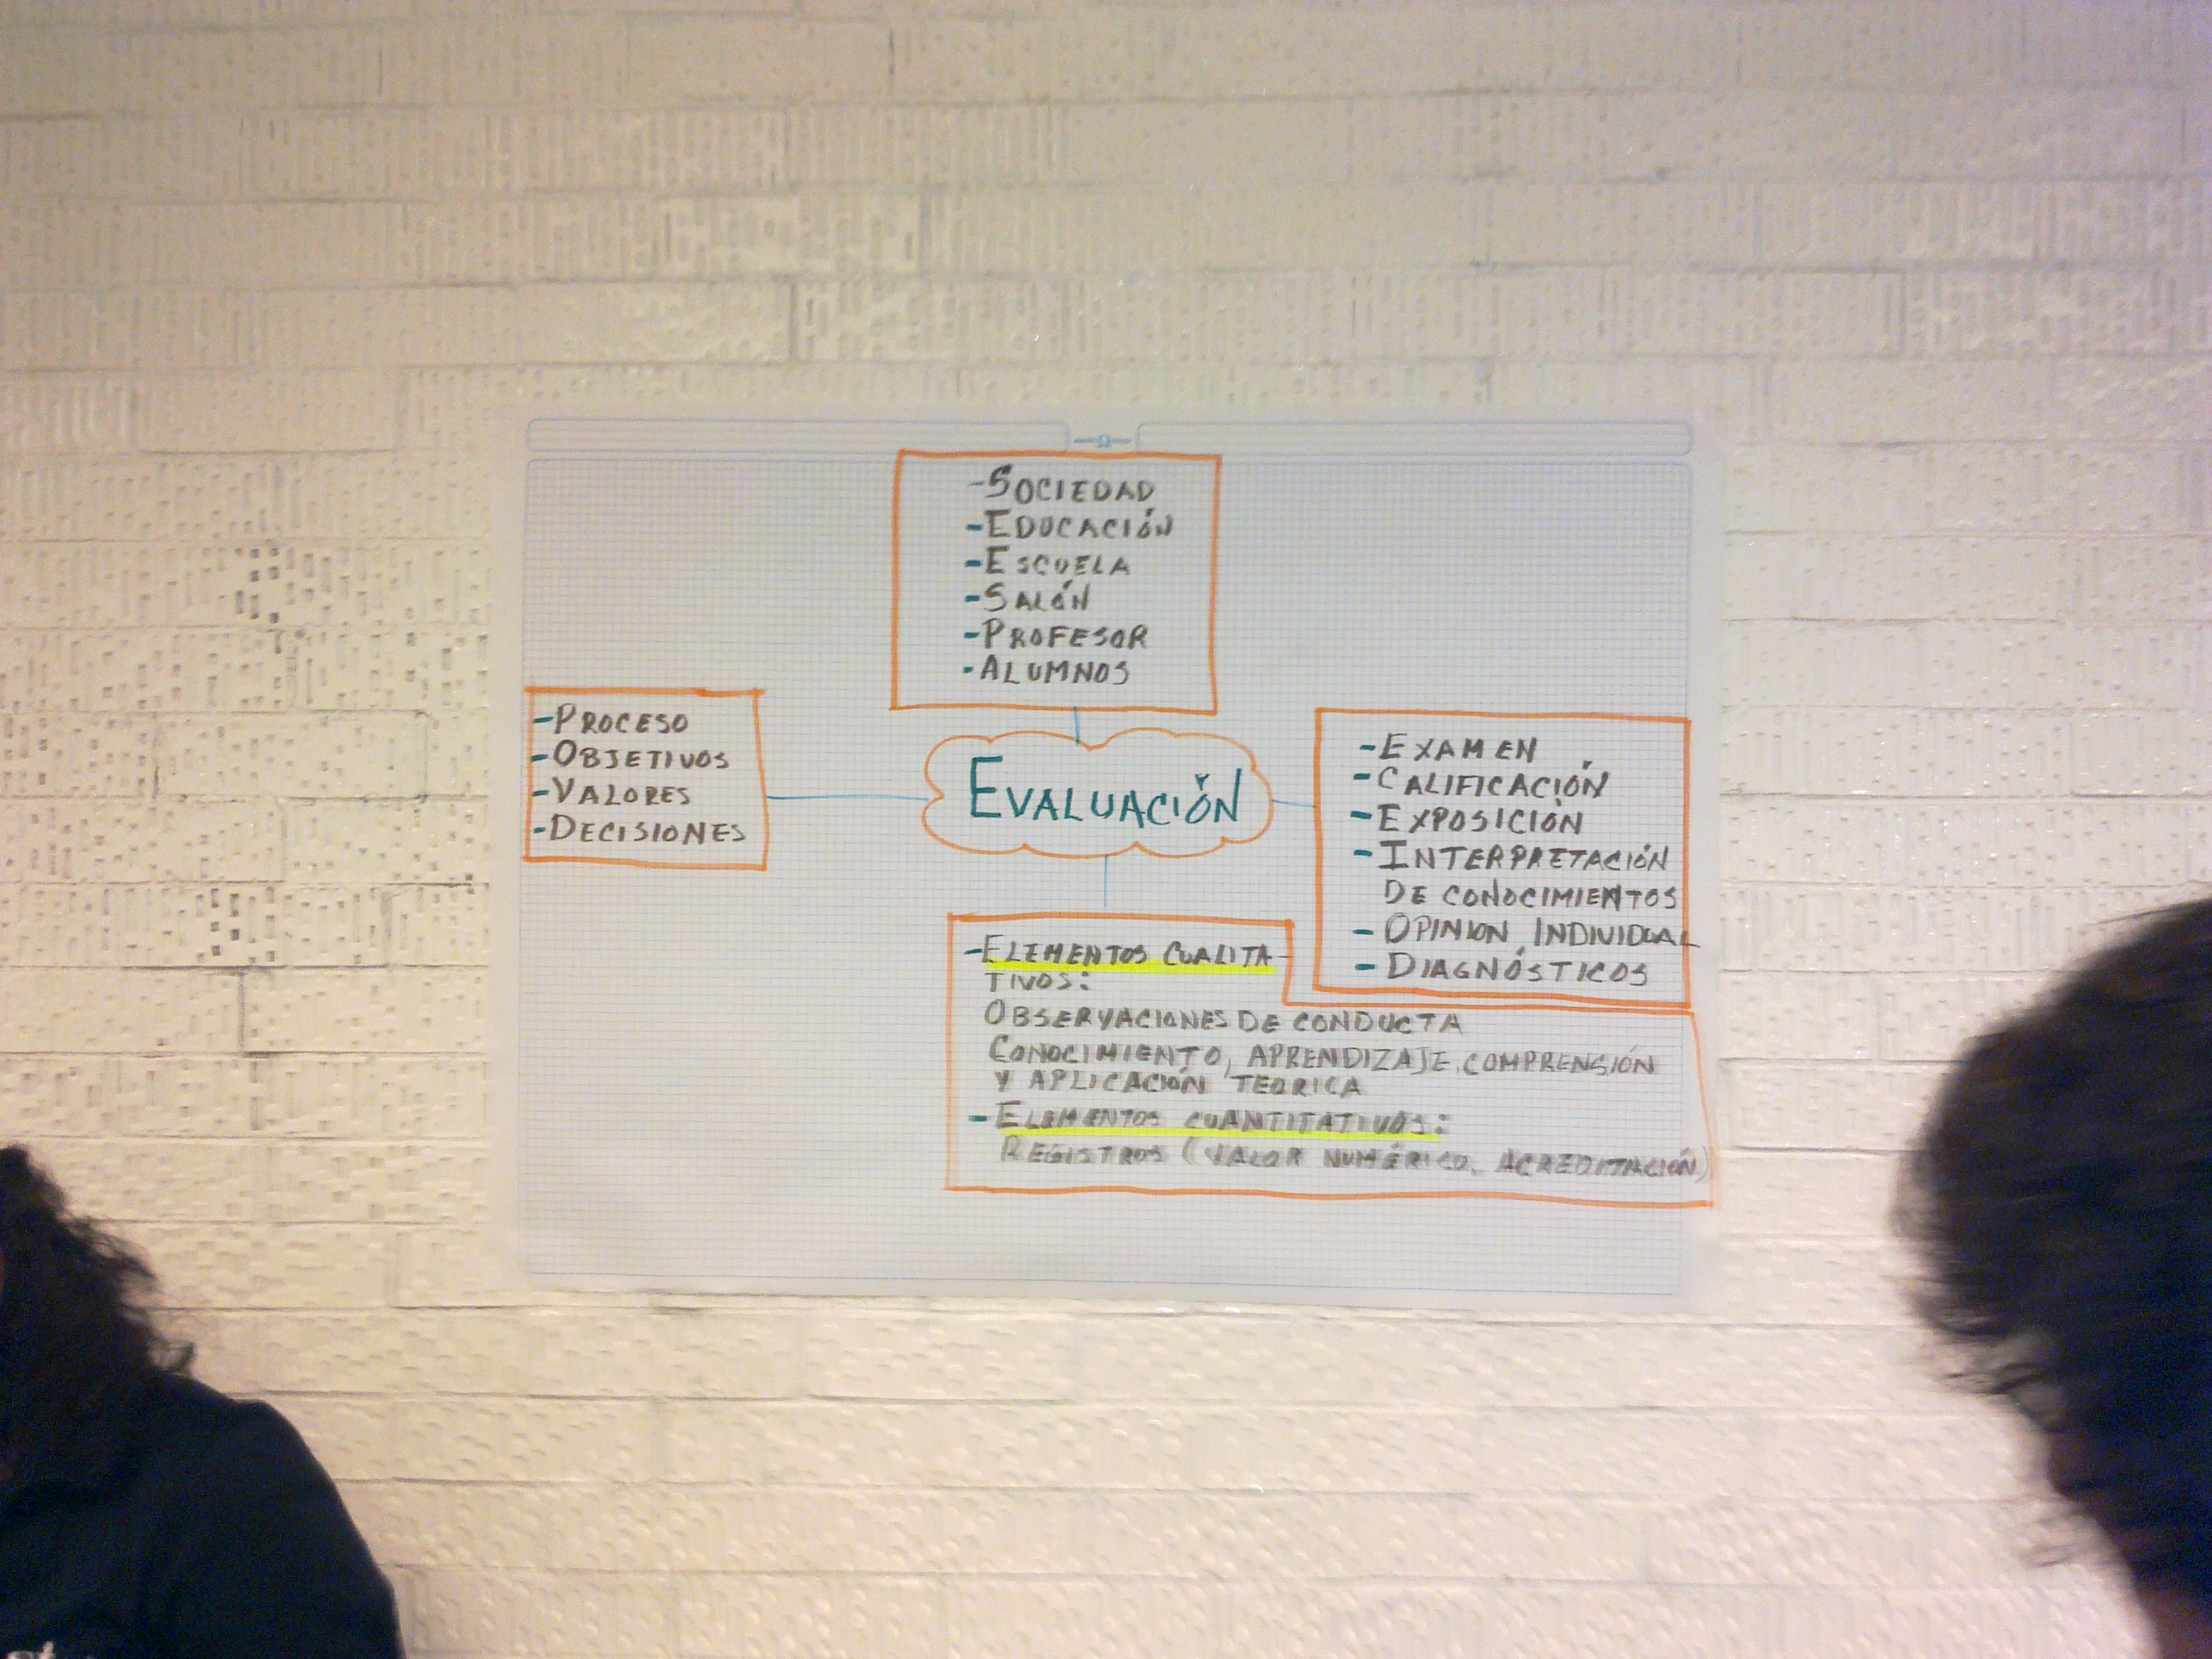 -SOCIEDAD
-EDUCACIÓN
-ESCUELA
-SALÓN
-PROFESOR
-ALUMNOS
-PROCESO
-OBJETIVOS
-VALORES
-DECISIONES
EVALUACIÓN
-EXAMEN
-CALIFICACIÓN
-EXPOSICIÓN
-INTERPRETACIÓN
DE CONOCIMIENTOS
-OPINION INDIVIDUAL
-DIAGNÓSTICOS
-ELEMENTOS CUALITA-
TIVOS:
OBSERVACIONES DE CONDUCTA
CONOCIMIENTO, APRENDIZAJE, COMPRENSIÓN
Y APLICACIÓN TEORICA
-ELEMENTOS CUANTITATIVOS:
REGISTROS (VALOR NUMÉRICO, ACREDITACIÓN)